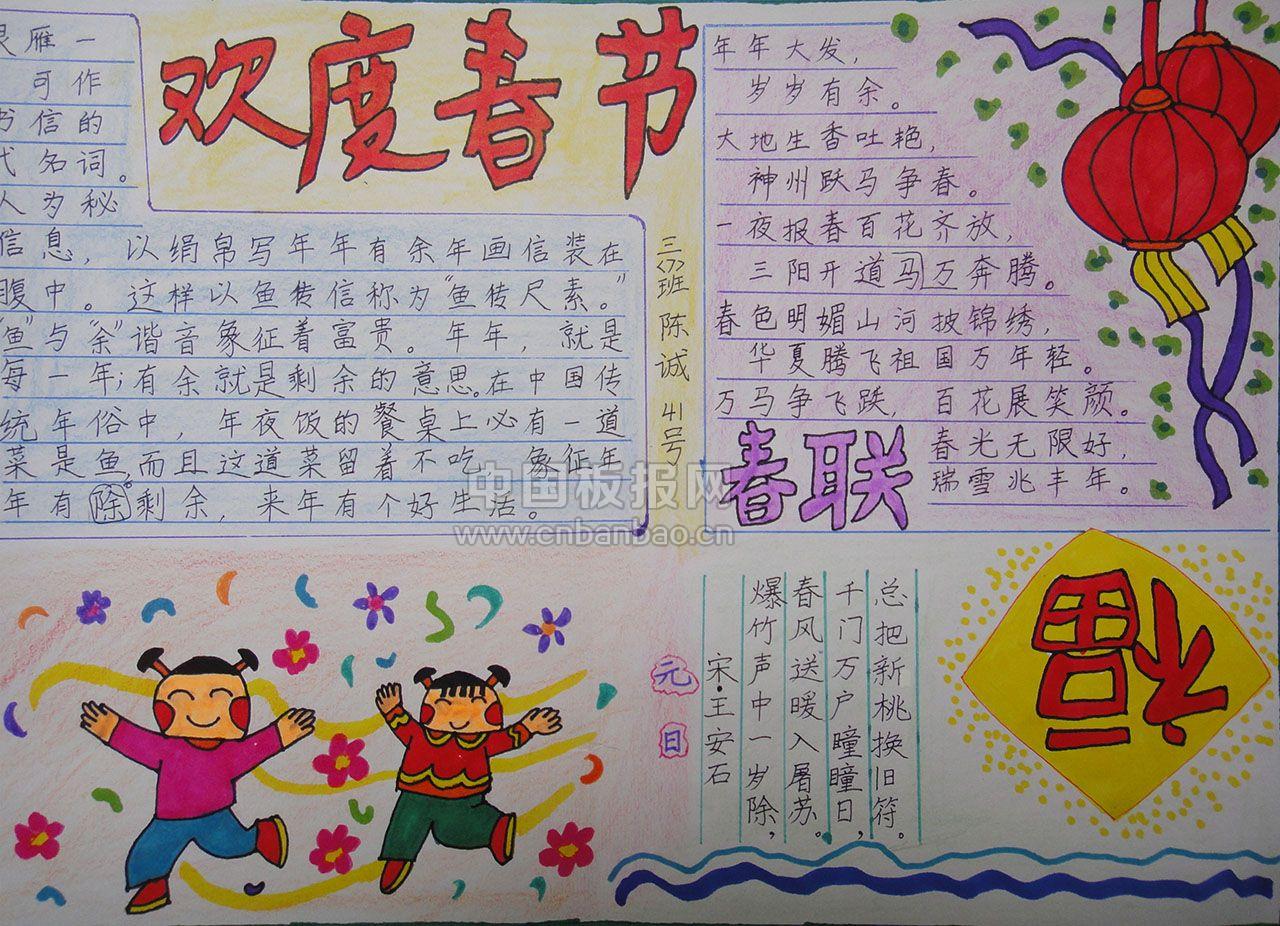 欢度春节
灵雁一
可作
书信的
代名词。
人为秘
信息，以绢帛写年年有余年画信装在
腹中。这样以鱼传信称为“鱼传尺素。”
“鱼”与“余”谐音象征着富贵。年年，就是
每一年；有余就是剩余的意思。在中国传
统年俗中，年夜饭的餐桌上必有一道
菜是鱼，而且这道菜留着不吃，象征年
年有除剩余，来年有个好生活。
三<7>班 陈诚 41号
年年大发，
岁岁有余。
大地生香吐艳，
神州跃马争春。
一夜报春百花齐放，
三阳开道马万奔腾。
春色明媚山河披锦绣，
华夏腾飞祖国万年轻。
万马争飞跃，百花展笑颜。
春光无限好，
瑞雪兆丰年。
春联
中国板报网
www.cnbanbao.cn
元日
宋·王安石
爆竹声中一岁除，
春风送暖入屠苏。
千门万户曈曈日，
总把新桃换旧符。
福